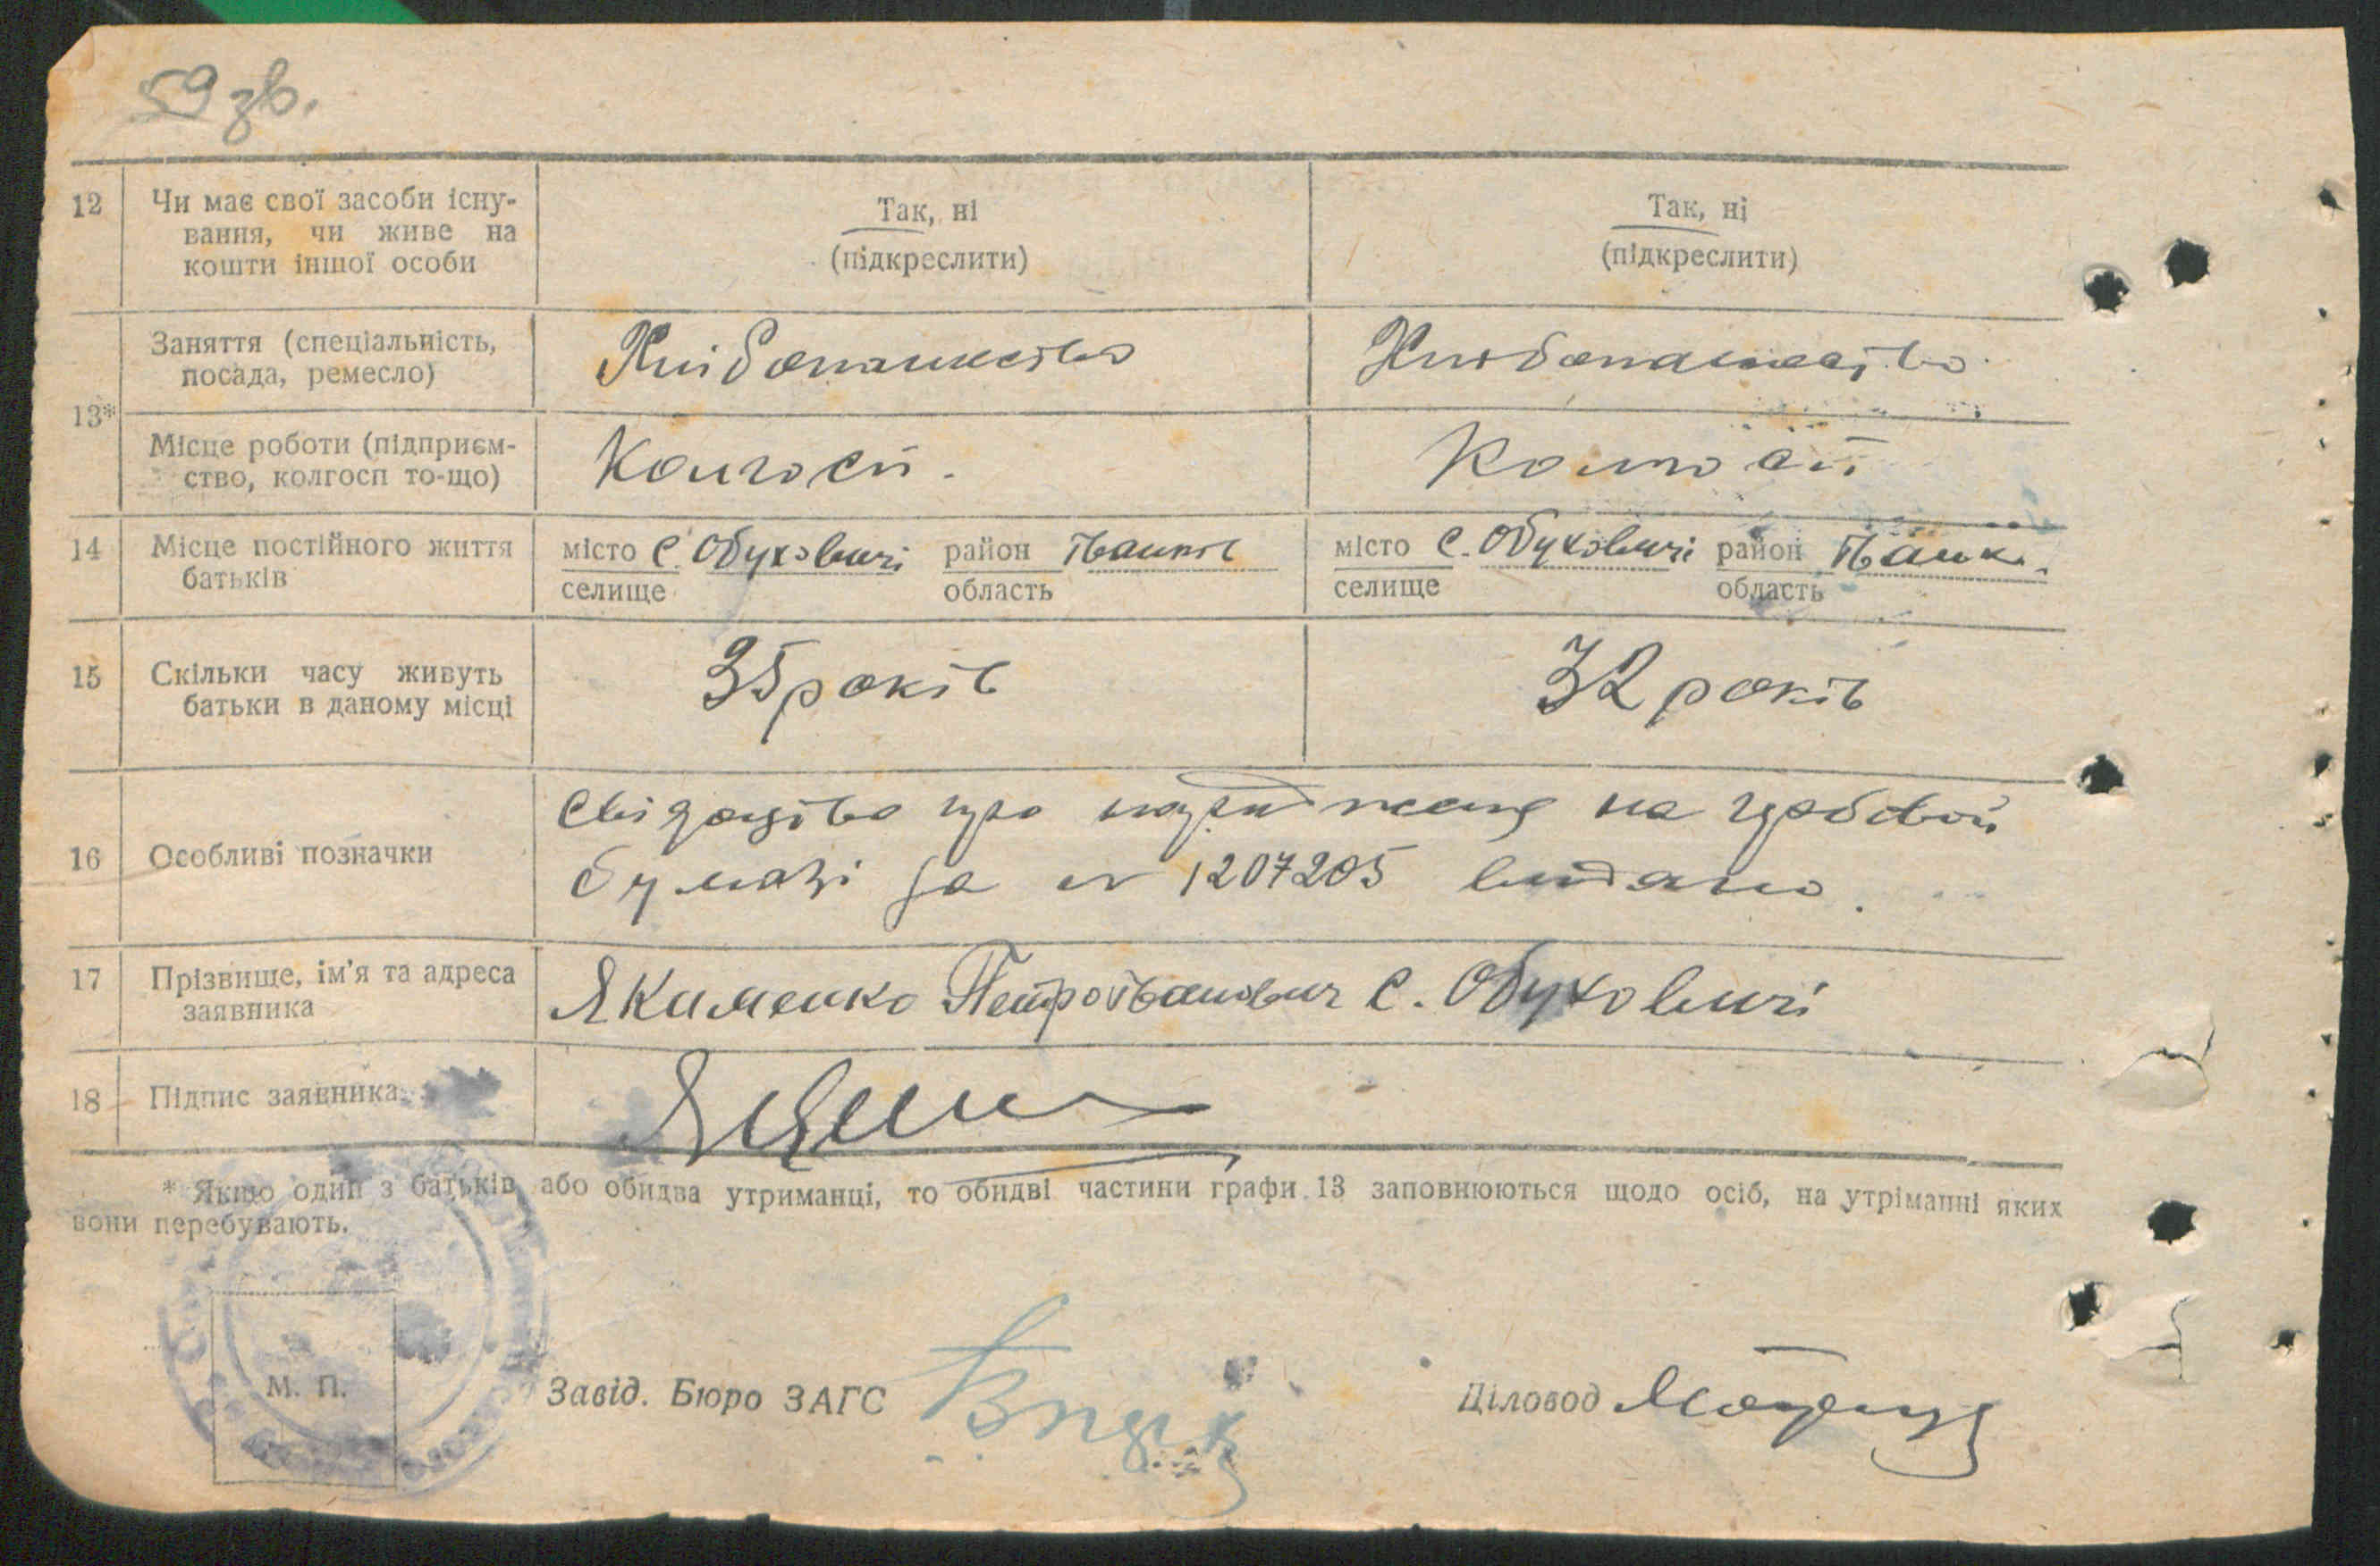 59 зв.
12 Чи має свої засоби існу-
вання, чи живе на
кошти іншої особи
Так, ні
(підкреслити)
Так, ні
(підкреслити)
13*
Заняття (спеціальність,
посада, ремесло)
Хлібопашество
Хлібопашество
Місце роботи (підприєм-
ство, колгосп то-що)
Колгосп.
Колгосп
14 Місце постійного життя
батьків
місто с. Обуховичі район Іванків
селище область
місто с. Обуховичі район Іванк.
селище область
15 Скільки часу живуть
батьки в даному місці
35 років
32 років
16 Особливі позначки
Свідоцтво про на гробовой
бумазі за № 1207205 видано.
17 Прізвище, ім'я та адреса
заявника
Якименко Петро Іванович с. Обуховичі
18 Підпис заявника
* Якщо один з батьків, або обидва утриманці, то обидві частини графи 13 заповнюються щодо осіб, на утріманні яких
вони перебувають.
М. П.
Завід. Бюро ЗАГС
Діловод